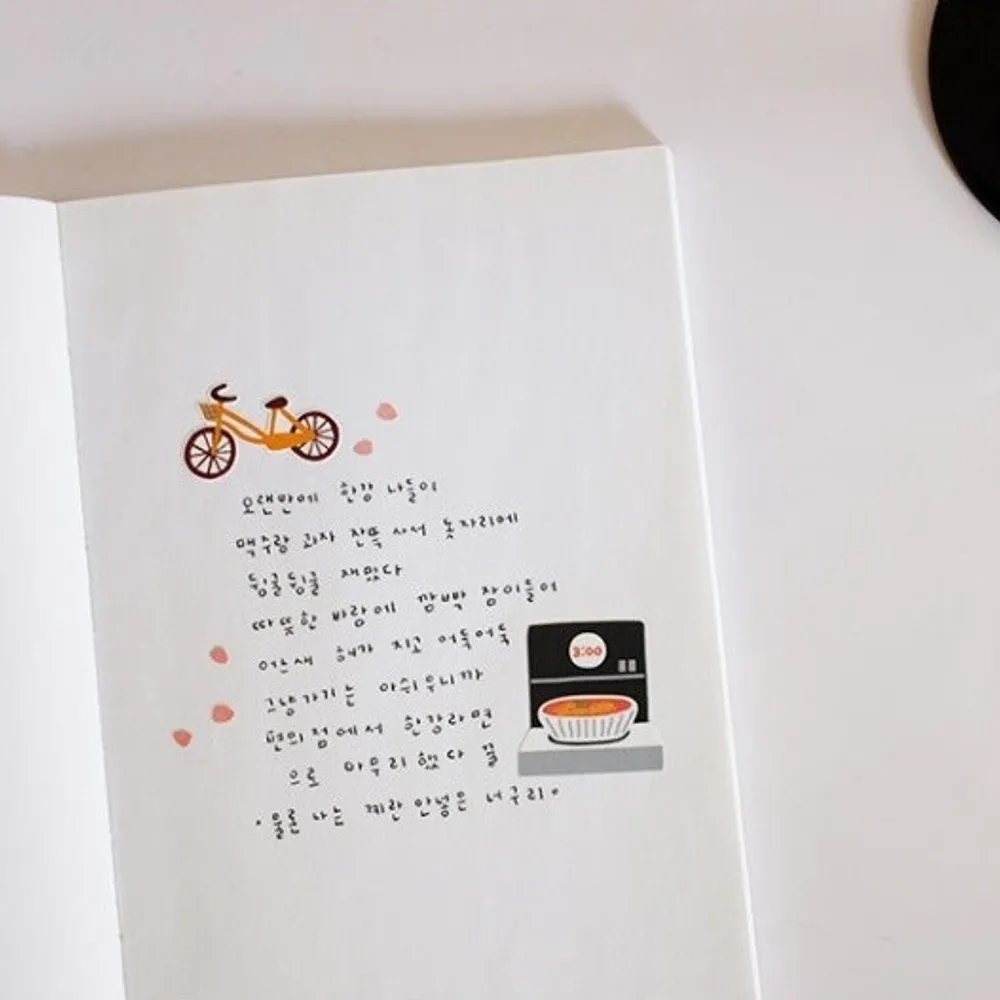 오랜만에 한강 나들이
맥주랑 과자 잔뜩 사서 돗자리에
뒹굴뒹굴 재밌다
따뜻한 바람에 깜빡 잠이들어
어느새 해가 지고 어둑어둑
그냥가기는 아쉬우니까
편의점에서 한강라면
으로 마무리했다
물론 나는 계란 안넣은 너구리.
3:00